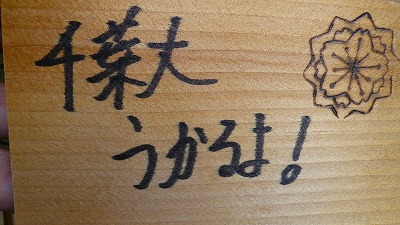 千葉大
うかるよ!